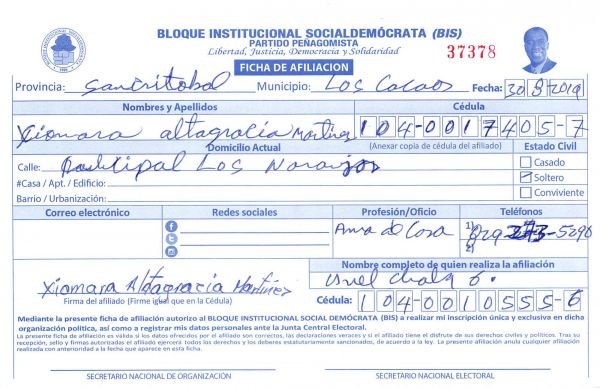 BLOQUE INSTITUCIONAL SOCIALDEMÓCRATA (BIS)
PARTIDO PEÑAGOMISTA
Libertad, Justicia, Democracia y Solidaridad
37378
FICHA DE AFILIACION
Provincia: Sancritobal Municipio: Los Cacaos Fecha: 30 8 2019
Nombres y Apellidos Cédula
Xiomara altagracia Martinez 104-0017405-7
Domicilio Actual (Anexar copia de cédula del afiliado) Estado Civil
Calle: Los Naranjos Casado
#Casa / Apt. / Edificio: Soltero
Barrio / Urbanización: Conviviente
Correo electrónico Redes sociales Profesión/Oficio Teléfonos
Ama de Casa 1)
2)
Nombre completo de quien realiza la afiliación
Xiomara Altagracia Martinez
Firma del afiliado (Firme igual que en la Cédula) Cédula: 104-0010555-6
Mediante la presente ficha de afiliación autorizo al BLOQUE INSTITUCIONAL SOCIAL DEMÓCRATA (BIS) a realizar mi inscripción única y exclusiva en dicha
organización política, así como a registrar mis datos personales ante la Junta Central Electoral.
La presente ficha de afiliación es válida si los datos ofrecidos por el afiliado son correctos, las declaraciones veraces y si el afiliado tiene el disfrute de sus derechos civiles y políticos. Tras su
recepción, sello y firmas autorizadas el afiliado ejercerá todos los derechos y los deberes estatutariamente sancionados, de acuerdo a la ley. La presente afiliación anula cualquier afiliación
realizada con anterioridad a la fecha que aparece en esta ficha.
SECRETARIO NACIONAL DE ORGANIZACIÓN SECRETARIO NACIONAL ELECTORAL